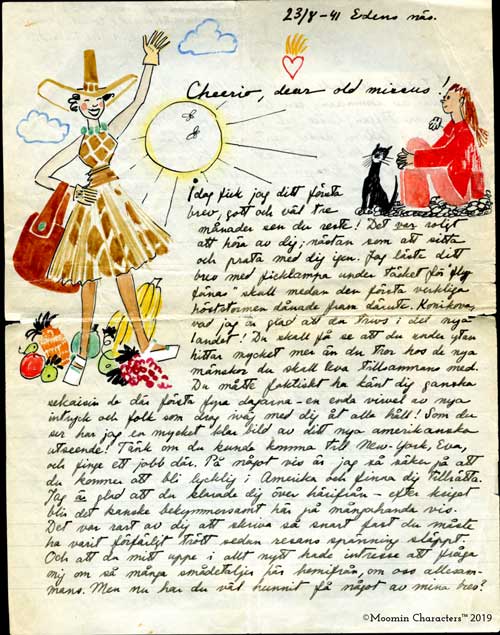 23/8 - 41 Edens näs.
Cheerio, dear old missus!
Idag fick jag ditt första
brev, gott och väl tre
månader sen du reste! Det var roligt
att höra av dig; nästan som att sitta
och prata med dig igen. Jag läste ditt
brev med ficklampa under täcket för "flyg
fänas" skull medan den första verkliga
höststormen dånade fram därute. Konikova,
vad jag är glad att du trivs i det nya
landet! Du skall få se att du under ytan
hittar mycket mer än du tror hos de nya
mänskor du skall leva tillsammans med.
Du måtte faktiskt ha känt dig ganska
sekaisin de där första fyra dagarna - en enda virvel av nya
intryck och folk som drog iväg med dig åt alla håll! Som du
ser har jag en mycket klar bild av ditt nya amerikanska
utseende! Tänk om du kunde komma till New-York, Eva,
och finge ett jobb där. På något vis är jag så säker på att
du kommer att bli lycklig i Amerika och finna dig tillrätta.
Jag är glad att du klarade dig över härifrån - efter kriget
blir det kanske bekymmersamt här på mångahanda vis.
Det var rart av dig att skriva så snart fast du måste
ha varit förfärligt trött sedan resans spänning släppt.
Och att du mitt uppe i allt nytt hade intresse att fråga
mig om så många smådetaljer här hemifrån, om oss allesam-
mans. Men nu har du väl hunnit få något av mina brev?
©Moomin Characters™ 2019